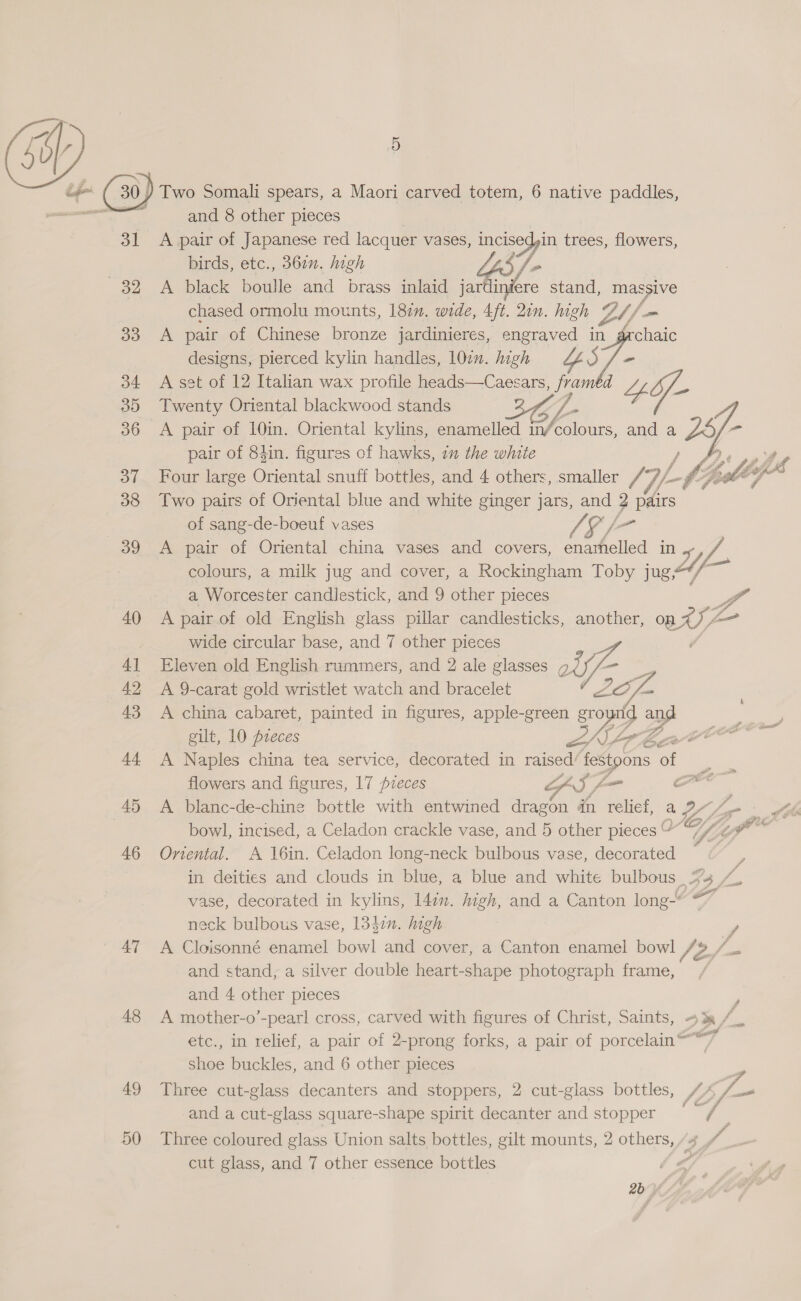 5
30 Two Somali spears, a Maori carved totem, 6 native paddles,
and 8 other pieces
31 A pair of Japanese red lacquer vases, incised, in trees, flowers,
birds, etc., 36in. high 45/-
32 A black boulle and brass inlaid jardiniere stand, massive
chased ormolu mounts, 18in. wide, 4ft. 2in. high
33 A pair of Chinese bronze jardinieres, engraved in archaic
designs, pierced kylin handles, 10in. high 45/-
34 A set of 12 Italian wax profile heads—Caesars, framed
35 Twenty Oriental blackwood stands
36 A pair of 10in. Oriental kylins, enamelled in colours, and a
pair of 8½in. figures of hawks, in the white
37 Four large Oriental snuff bottles, and 4 others, smaller
38 Two pairs of Oriental blue and white ginger jars, and 2 pairs
of sang-de-boeuf vases
39 A pair of Oriental china vases and covers, enamelled in
colours, a milk jug and cover, a Rockingham Toby jug,
a Worcester candlestick, and 9 other pieces
40 A pair of old English glass pillar candlesticks, another, on
wide circular base, and 7 other pieces
41 Eleven old English rummers, and 2 ale glasses
42 A 9-carat gold wristlet watch and bracelet
43 A china cabaret, painted in figures, apple-green ground and
gilt, 10 pieces
44 A Naples china tea service, decorated in raised festoons of
flowers and figures, 17 pieces
45 A blanc-de-chine bottle with entwined dragon in relief, a
bowl, incised, a Celadon crackle vase, and 5 other pieces
46 Oriental. A 16in. Celadon long-neck bulbous vase, decorated
in deities and clouds in blue, a blue and white bulbous
vase, decorated in kylins, 14in. high, and a Canton long-
neck bulbous vase, 13½in. high
47 A Cloisonné enamel bowl and cover, a Canton enamel bowl
and stand, a silver double heart-shape photograph frame,
and 4 other pieces
48 A mother-o'-pearl cross, carved with figures of Christ, Saints,
etc., in relief, a pair of 2-prong forks, a pair of porcelain
shoe buckles, and 6 other pieces
49 Three cut-glass decanters and stoppers, 2 cut-glass bottles,
and a cut-glass square-shape spirit decanter and stopper
50 Three coloured glass Union salts bottles, gilt mounts, 2 others,
cut glass, and 7 other essence bottles
2b